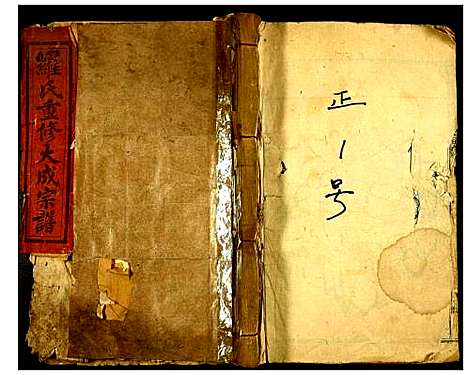 羅氏重修大成宗譜
正
1
号